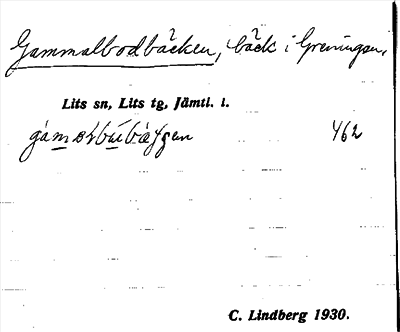 Gammalbodbäcken, bäck i Greningen,
Lits sn, Lits tg, Jämtl. l.
462
C. Lindberg 1930.